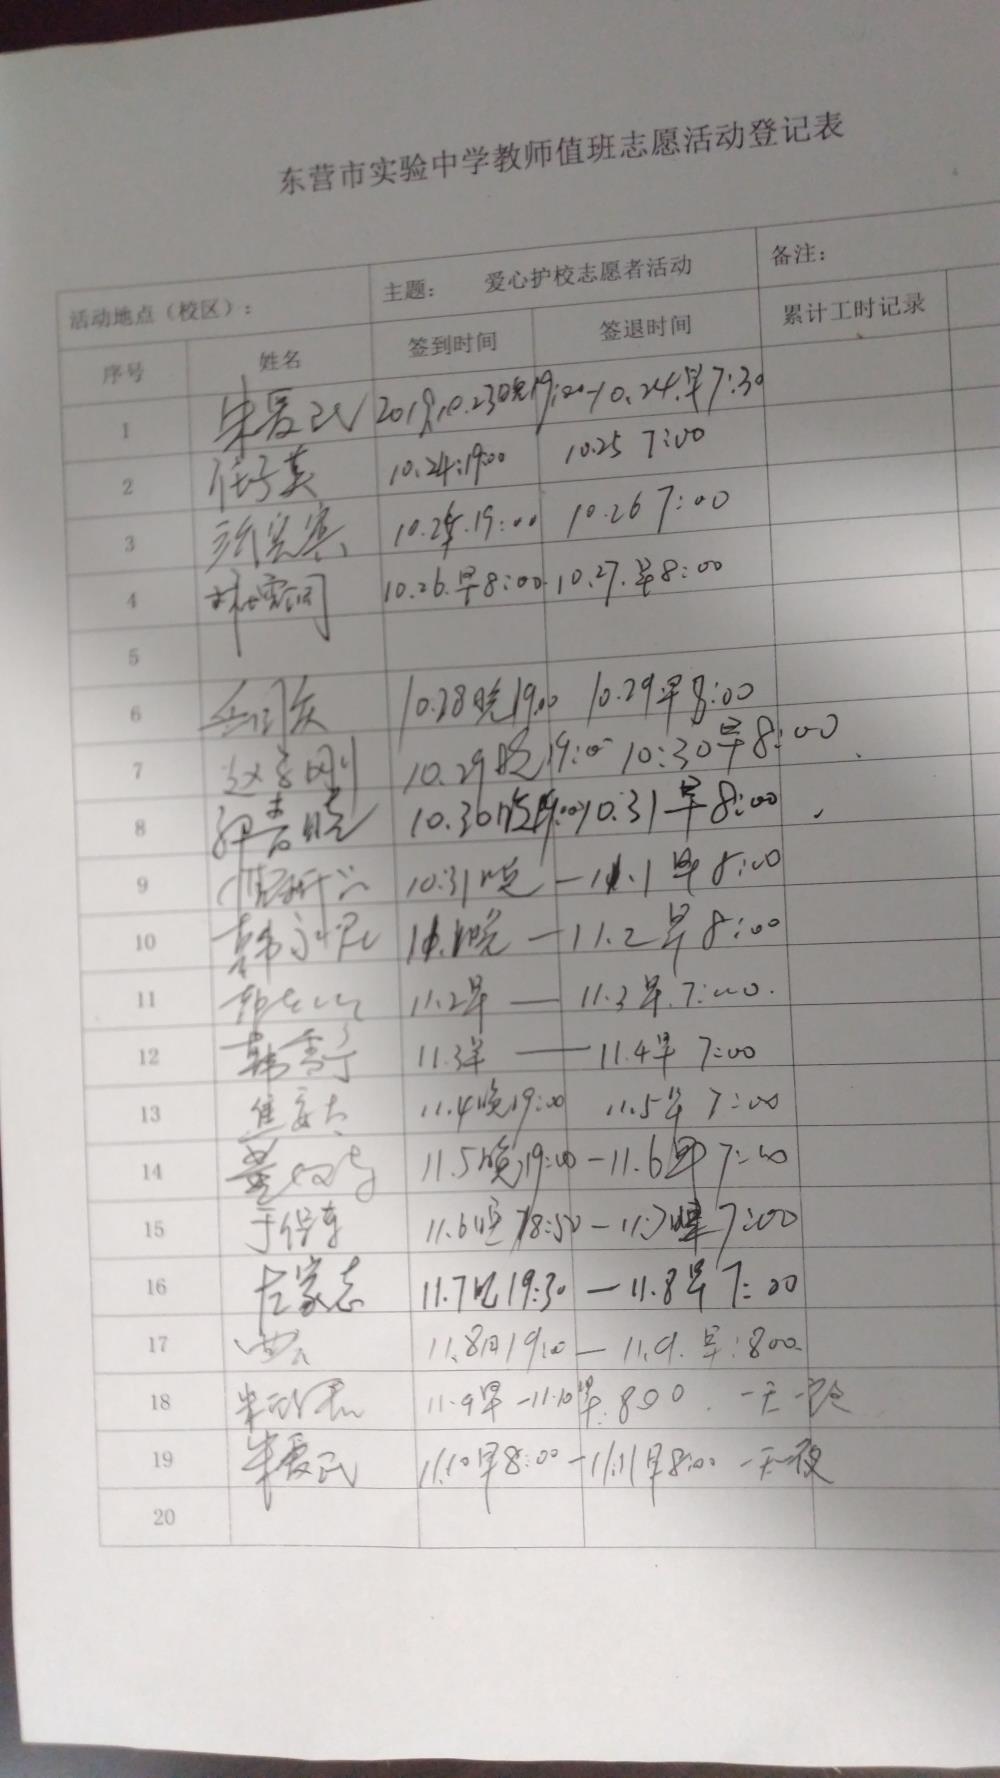 东营市实验中学教师值班志愿活动登记表
活动地点（校区）： 主题： 爱心护校志愿者活动 备注：
序号 姓名 签到时间 签退时间 累计工时记录
1 朱爱民 2019.10.23晚19:00-10.24.早7:30
2 任子英 10.24:19:00 10.25 7:00
3 10.25.19:00 10.26 7:00
4 10.26.早8:00 10.27.早8:00
5
6 10.28晚19:00 10.29早8:00
7 赵 刚 10.29晚19:00 10:30早8:00
8 晓 10.30晚19:00 10.31早8:00
9 10.31晚—11.1早8:00
10 韩 11.1晚—11.2早8:00
11 11.2早——11.3早.7:00.
12 韩 11.3早——11.4早 7:00
13 焦 11.4晚19:00 11.5早 7:00
14 董 11.5晚19:00-11.6早7:00
15 于保 11.6晚18:50-11.7早7:00
16 左家志 11.7晚19:30-11.8早7:00
17 11.8日19:00-11.9.早:800
18 朱 11.9早-11.10早.800. 一天一夜
19 朱爱民 11.10早8:00-11.11早8:00 一天一夜
20